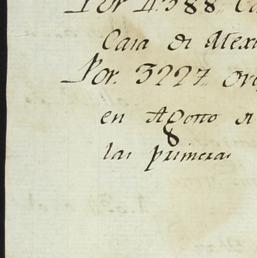 Por 4388 Ca
Casa di Alex
Por. 3227 or
en Agosto di
las primeras